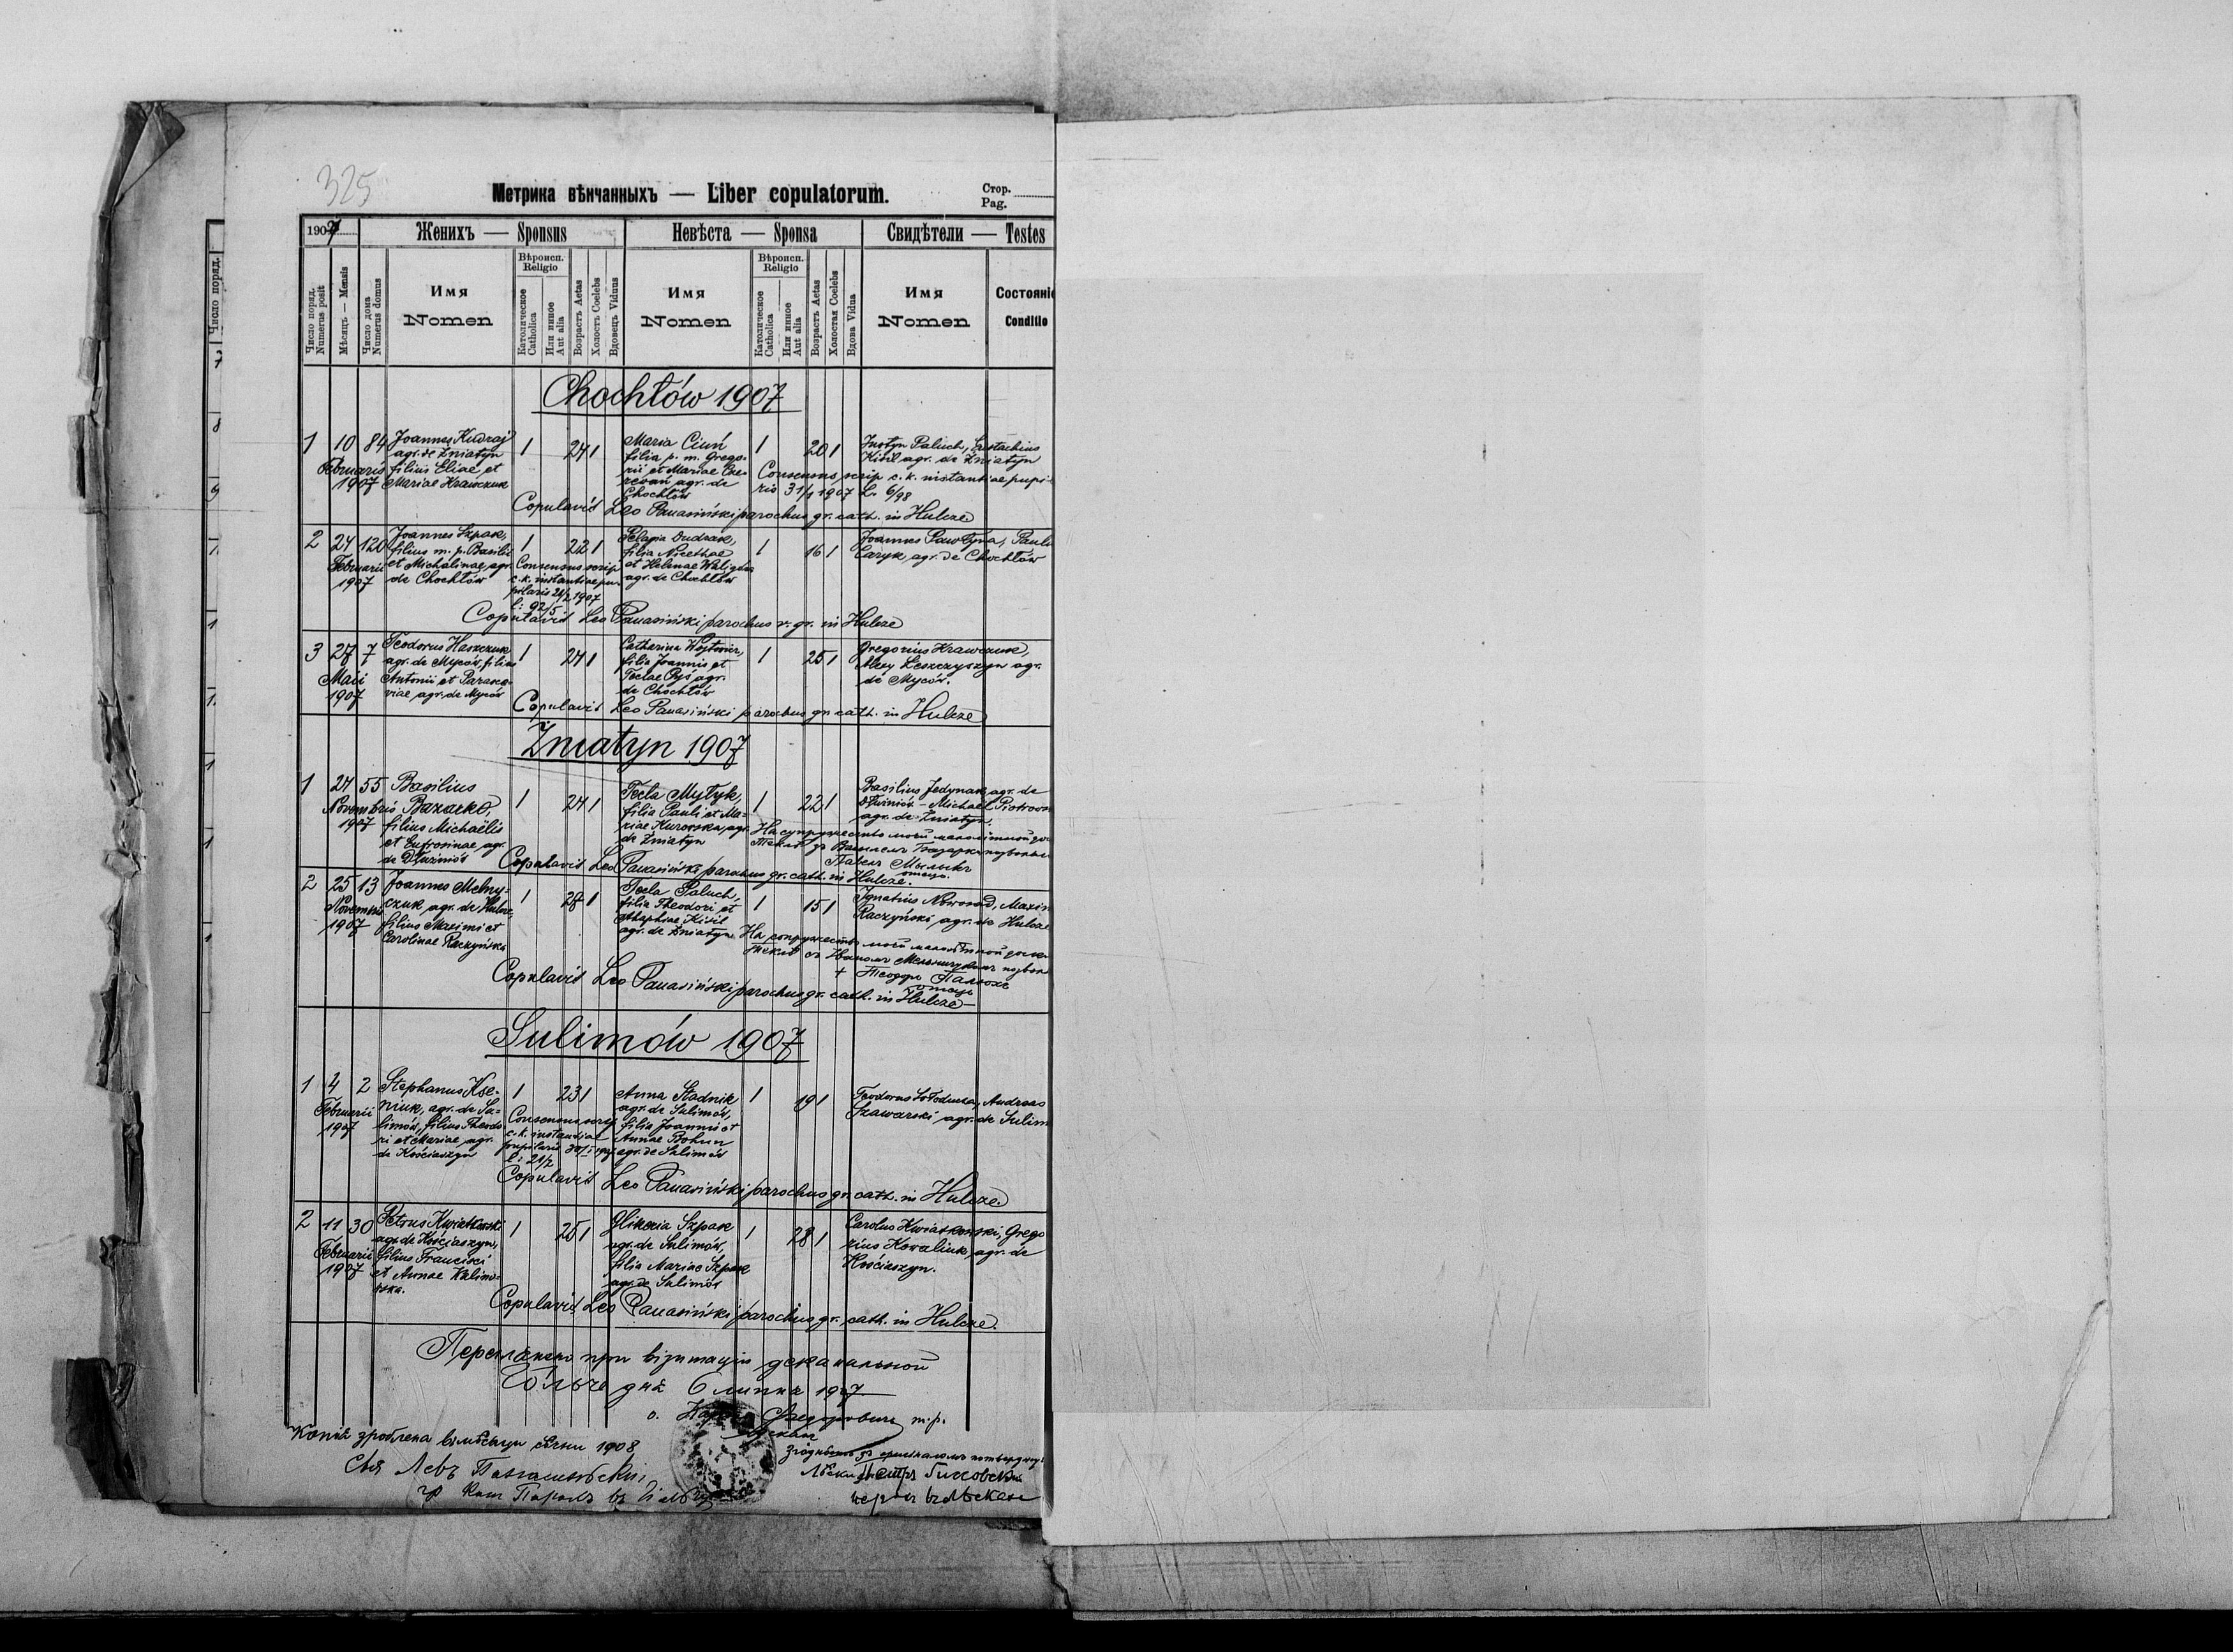 325
Метрика вѣнчанныхъ — Liber copulatorum.
Стор.
Pag.
1907
Женихъ — Sponsus
Невѣста — Sponsa
Свидѣтели — Testes
Число поряд.
Numerus posit
Мѣсяцъ — Mensis
Число дома
Numerus domus
Имя
Nomen
Вѣроисп.
Religio
Католическое
Catholica
Или инное
Aut alia
Возрастъ Aetas
Холостъ Coelebs
Вдовецъ Viduus
Имя
Nomen
Вѣроисп.
Religio
Католическое
Catholica
Или инное
Aut alia
Возрастъ Aetas
Холостая Coelebs
Вдова Vidua
Имя
Nomen
Состояніе
Conditio
Число поряд.
Chochłów 1907
1 10 84
Februarii
1907
Joannes Kudraj
agr. de Żniatyn
filius Eliae et
Mariae Krawczuk
1 24 1
Maria Ciuń
filia p. m. Grego-
rii et Mariae
agr. de
Chochłów
1 20 1
Justyn Paluch, Eustachius
Kisil agr. de Żniatyn
Consensus scrip c. k. instantiae pupi-
ris 31/1 1907 L. 6/98
Copulavit Leo Panasiński parochus gr. cath. in Hulcze
2 24 120
Februarii
1907
Joannes Szpak,
filius m. p. Basilii
et Michalinae, agr.
de Chochłów
1 22 1
Consensus scrip
c. k. instantiae pu-
pilaris 21/2 1907
l: 92/5
Pelagia Dudzak,
filia Nicethae
et Helenae
agr. de Chochłów
1 16 1
Joannes Pawłyna, Paul
Caryk, agr. de Chochłów
Copulavit Leo Panasiński parochus r. gr. in Hulcze
3 27 7
Maii
1907
Teodorus Haszczuk
agr. de Myców, filius
Antonii et Parasce-
viae agr. de Myców
1 24 1
Catharina Wojtowicz,
filia Joannis et
Teclae Pyś agr.
de Chochłów
1 25 1
Gregorius Krawczuk,
Alexy Leszczyszyn agr.
de Myców.
Copulavit Leo Panasiński parochus gr. cath. in Hulcze
Żniatyn 1907
1 24 55
Novembris
1907
Basilius
Bazarko,
filius Michaëlis
et Eufrosinae, agr.
de Dłużniów
1 24 1
Tecla Mytyk,
filia Pauli et Ma-
riae Kurowska, agr.
de Żniatyn
1 22 1
Basilius Jedynak, agr. de
Dłużniów - Michael Piotrow
agr. de Żniatyn.
Copulavit Leo Panasiński parochus gr. cath. in Hulcze.
2 25 13
Novembris
1907
Joannes Melny-
czuk, agr. de Hulcze,
filius Maximi et
Carolinae Raczyńska
1 28 1
Tecla Paluch,
filia Theodori et
Kisil
agr. de Żniatyn
1 15 1
Ignatius Nowosad, Maxim
Raczyński, agr. de Hulcze
Copulavit Leo Panasiński parochus gr. cath. in Hulcze
Sulimów 1907
1 4 2
Februarii
1907
Stephanus Kse-
niuk, agr. de Su-
limów, filius Theodo-
ri et Mariae agr.
de Kościaszyn
1 23 1
Consensus scrip
c. k. instantiae
pupilaris
l: 21/7
Anna Stadnik
agr. de Sulimów,
filia Joannis et
Annae Bohun
agr. de Sulimów
1 19 1
Teodorus Sołoducha, Andreas
Szawarski, agr. de Sulim
Copulavit Leo Panasiński parochus gr. cath. in Hulcze.
2 11 30
Februarii
1907
Petrus Kwiatkowski
agr. de Kościaszyn,
filius Francisci
et Annae Kalino-
wska.
1 25 1
Glikeria Szpak
agr. de Sulimów,
filia Mariae Szpak
agr. de Sulimów
1 28 1
Carolus Kwiatkowski, Grego
rius Kowaliuk, agr. de
Kościaszyn.
Copulavit Leo Panasiński parochus gr. cath. in Hulcze.
при візитаціи деканальной
дня 6 липня 1907
о. m. p.
Копія зроблена 1908
Левъ